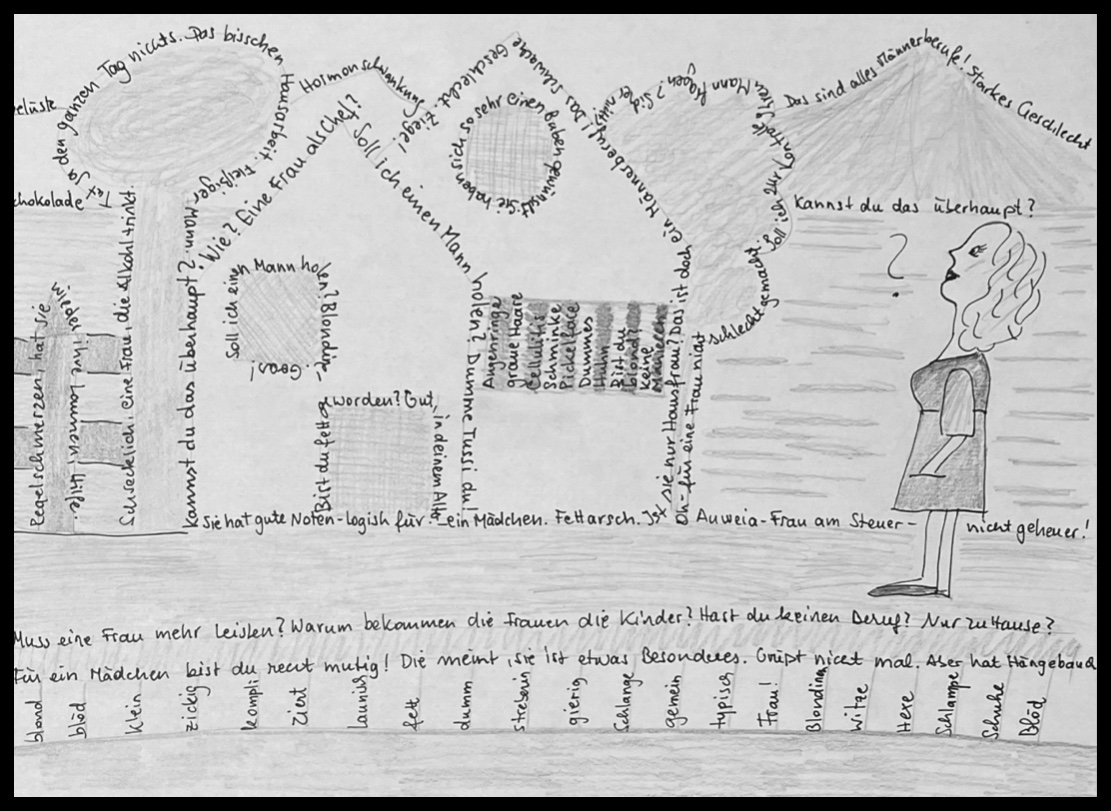 elüste
chokolade
Tut ja den ganzen Tag nichts. Das bisschen Hausarbeit. Fleißiger Mann.
Hormonschwankung
Ziege!
Wie? Eine Frau als Chef?
Soll ich einen Mann holen? Dumme Tussi du!
Geschlecht
Das schwache
Sie haben sich so sehr einen Buben gewünscht
ein Männerberuf!
Sie nur Hausfrau? Das ist doch
Ist
Soll ich zur Kontrolle Ihren Mann fragen?
Oh-für eine Frau nicht schlecht gemacht.
Das sind alles Männerberufe! Starkes Geschlecht
Kannst du das überhaupt?
?
Regelschmerzen, hat sie
wohl
ihre Launen, Hilfe.
Schrecklich, eine Frau, die Alkohl trinkt.
Kannst du das überhaupt?
Soll ich einen Mann holen? Blondine,
Bist du fett geworden? Gut, in deinem Alter
Augenringe
graue Haare
Cellulitis
Schminke
Pickelface
Dummes
Huhn
Bist du
blond?
keine
Manieren
Sie hat gute Noten-logish für ein Mädchen. Fettarsch.
Auweia-Frau am Steuer-
nicht geheuer!
Muss eine Frau mehr leisten? Warum bekommen die Frauen die Kinder? Hast du keinen Beruf? Nur zu Hause?
Für ein Mädchen bist du recht mutig! Die meint, sie ist etwas Besonderes. Grüpt nicht mal. Aber hat Hängebauch
blond
blöd
klein
zickig
kompli
ziert
launisch
fett
dumm
streberin
gierig
Schlange
gemein
typisch
Frau!
Blondinen
witze
Hexe
Schlampe
Schuhe
Blöd